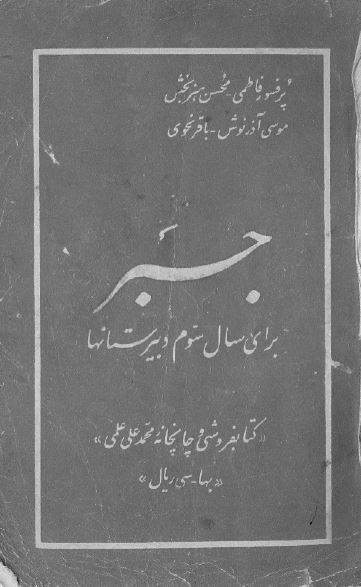 پرفسور فاطمی - محسن هنربخش
موسی آذرنوش - باقر نحوی
جبر
برای سال سوم دبیرستانها
«کتابفروشی و چاپخانهٔ محمد علی علمی»
«بها - سی ریال»